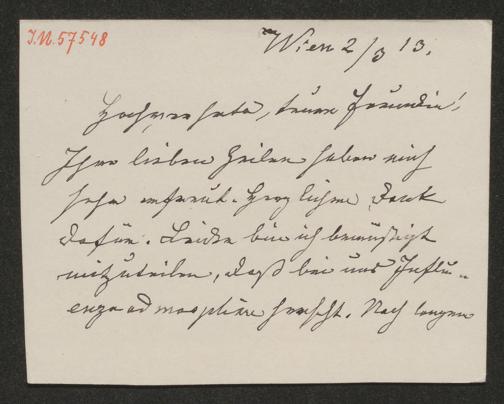 I.N. 57548
Wien 2/3 13.
Hochverehrte, teure Freundin!
Ihre lieben Zeilen haben mich
sehr erfreut. Herzlichen Dank
dafür. Leider bin ich bemüßigt
mitzuteilen, daß bei uns Influ-
enzaadmosphäre herrscht. Nach langem